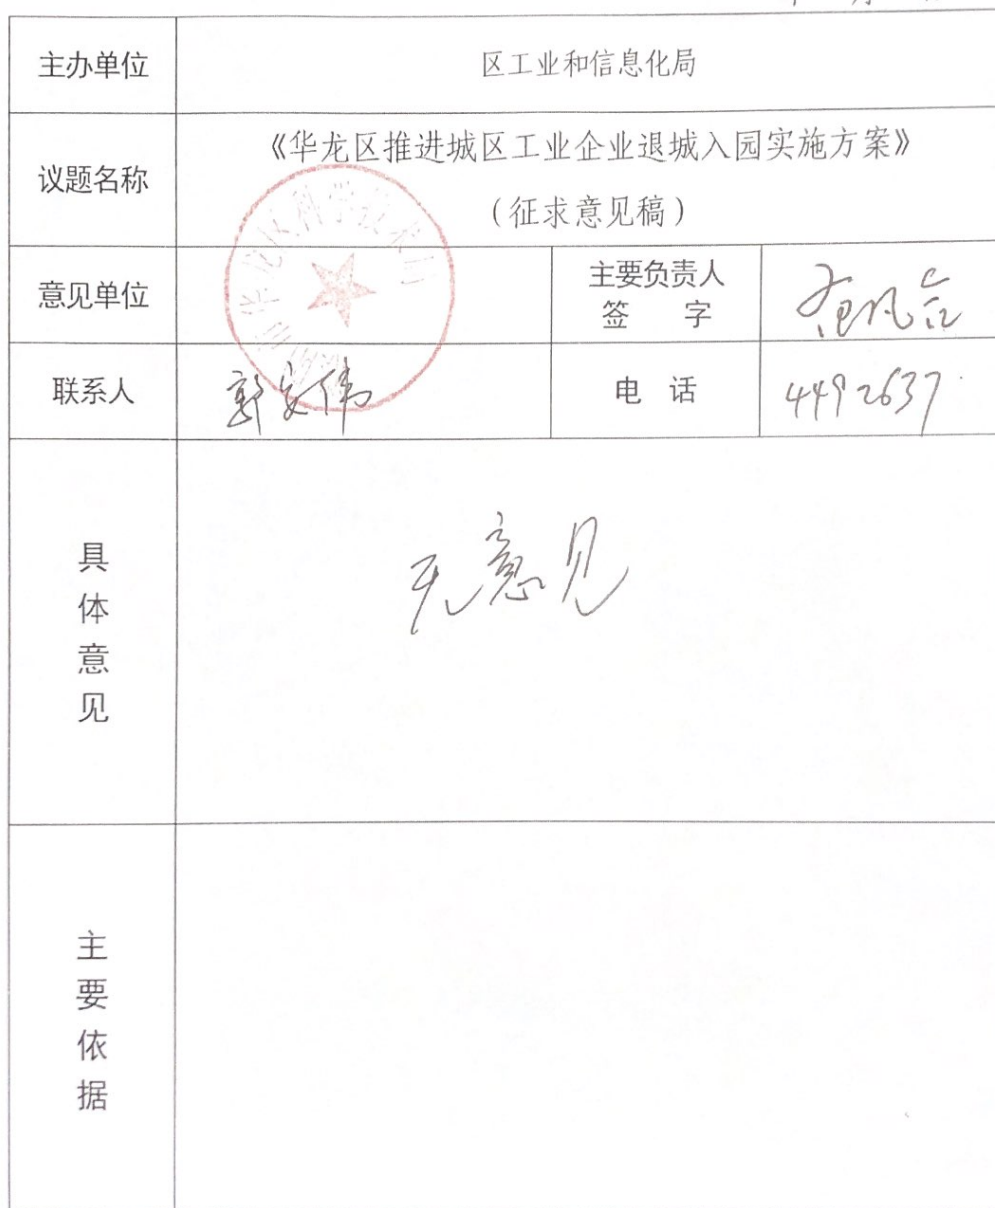 主办单位 区工业和信息化局
议题名称 《华龙区推进城区工业企业退城入园实施方案》
（征求意见稿）
意见单位 华龙区科学技术局 主要负责人
签 字
联系人 郭安伟 电 话 4492637
具体意见 无意见
主要依据